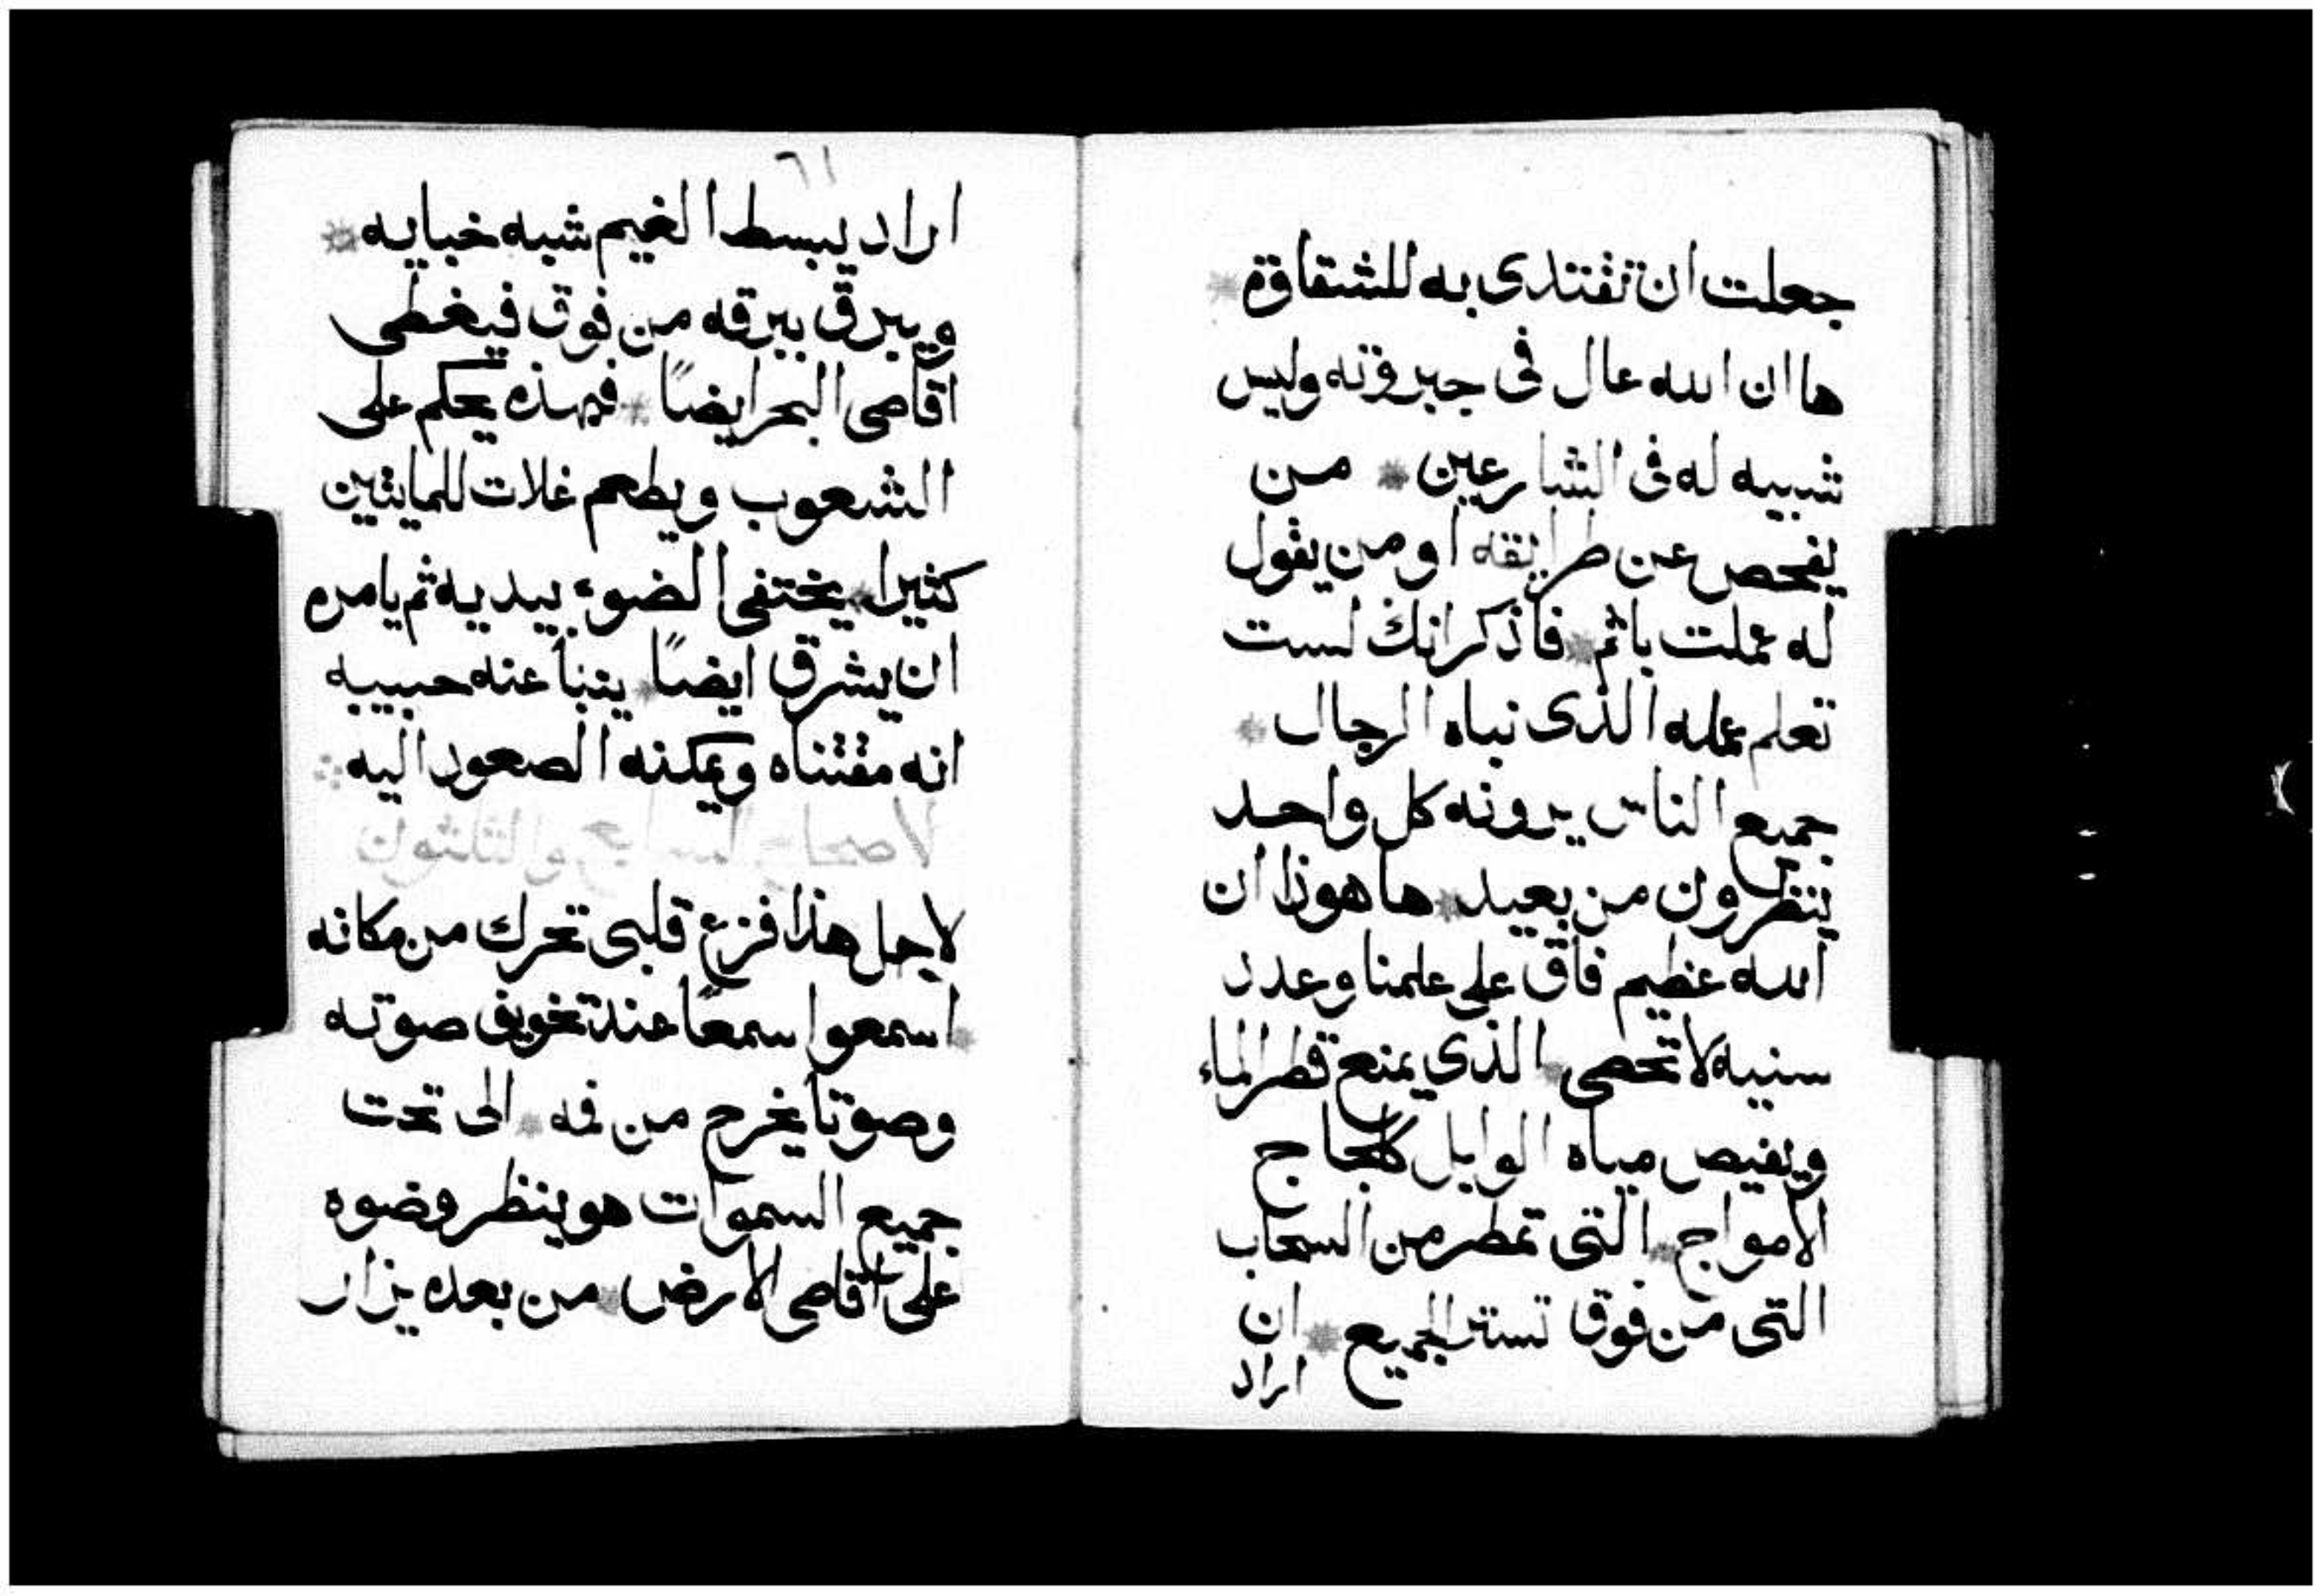 جعلت ان تقتدى به للشقاوة
ها ان الله عال فى جبروته وليس
شبيه له فى الشارعين من
يفحص عن طرايقه او من يقول
له عملت باثم فاذكر انك لست
تعلم عمله الذى نباه الرجال
جميع الناس يرونه كل واحد
ينظرون من بعيد ها هوذا ان
الله عظيم فاق على علمنا وعدد
سنيه لا تحصى الذي يمنع قطر الماء
ويفيض مياه الوابل كلجاج
الامواج التى تمطر من السحاب
التى من فوق تستر الجميع ان
اراد
٦١
اراد يبسط الغيم شبه خبايه
ويبرق ببرقه من فوق فيغطى
اقاصى البحر ايضاً فبهذه يحكم على
الشعوب ويطعم غلات للمايتين
كثيرا يختفى الضوء بيديه ثم يامره
ان يشرق ايضاً يتنبا عنه حبيبه
انه مقتناه ويمكنه الصعود اليه
الاصحاح السابع والثلثون
لاجل هذا فزع قلبى تحرك من مكانه
اسمعوا سمعًا عند تخويف صوته
وصوتا يخرج من فمه الى تحت
جميع السموات هو ينظر وضوه
على اقاصى الارض من بعده يزار